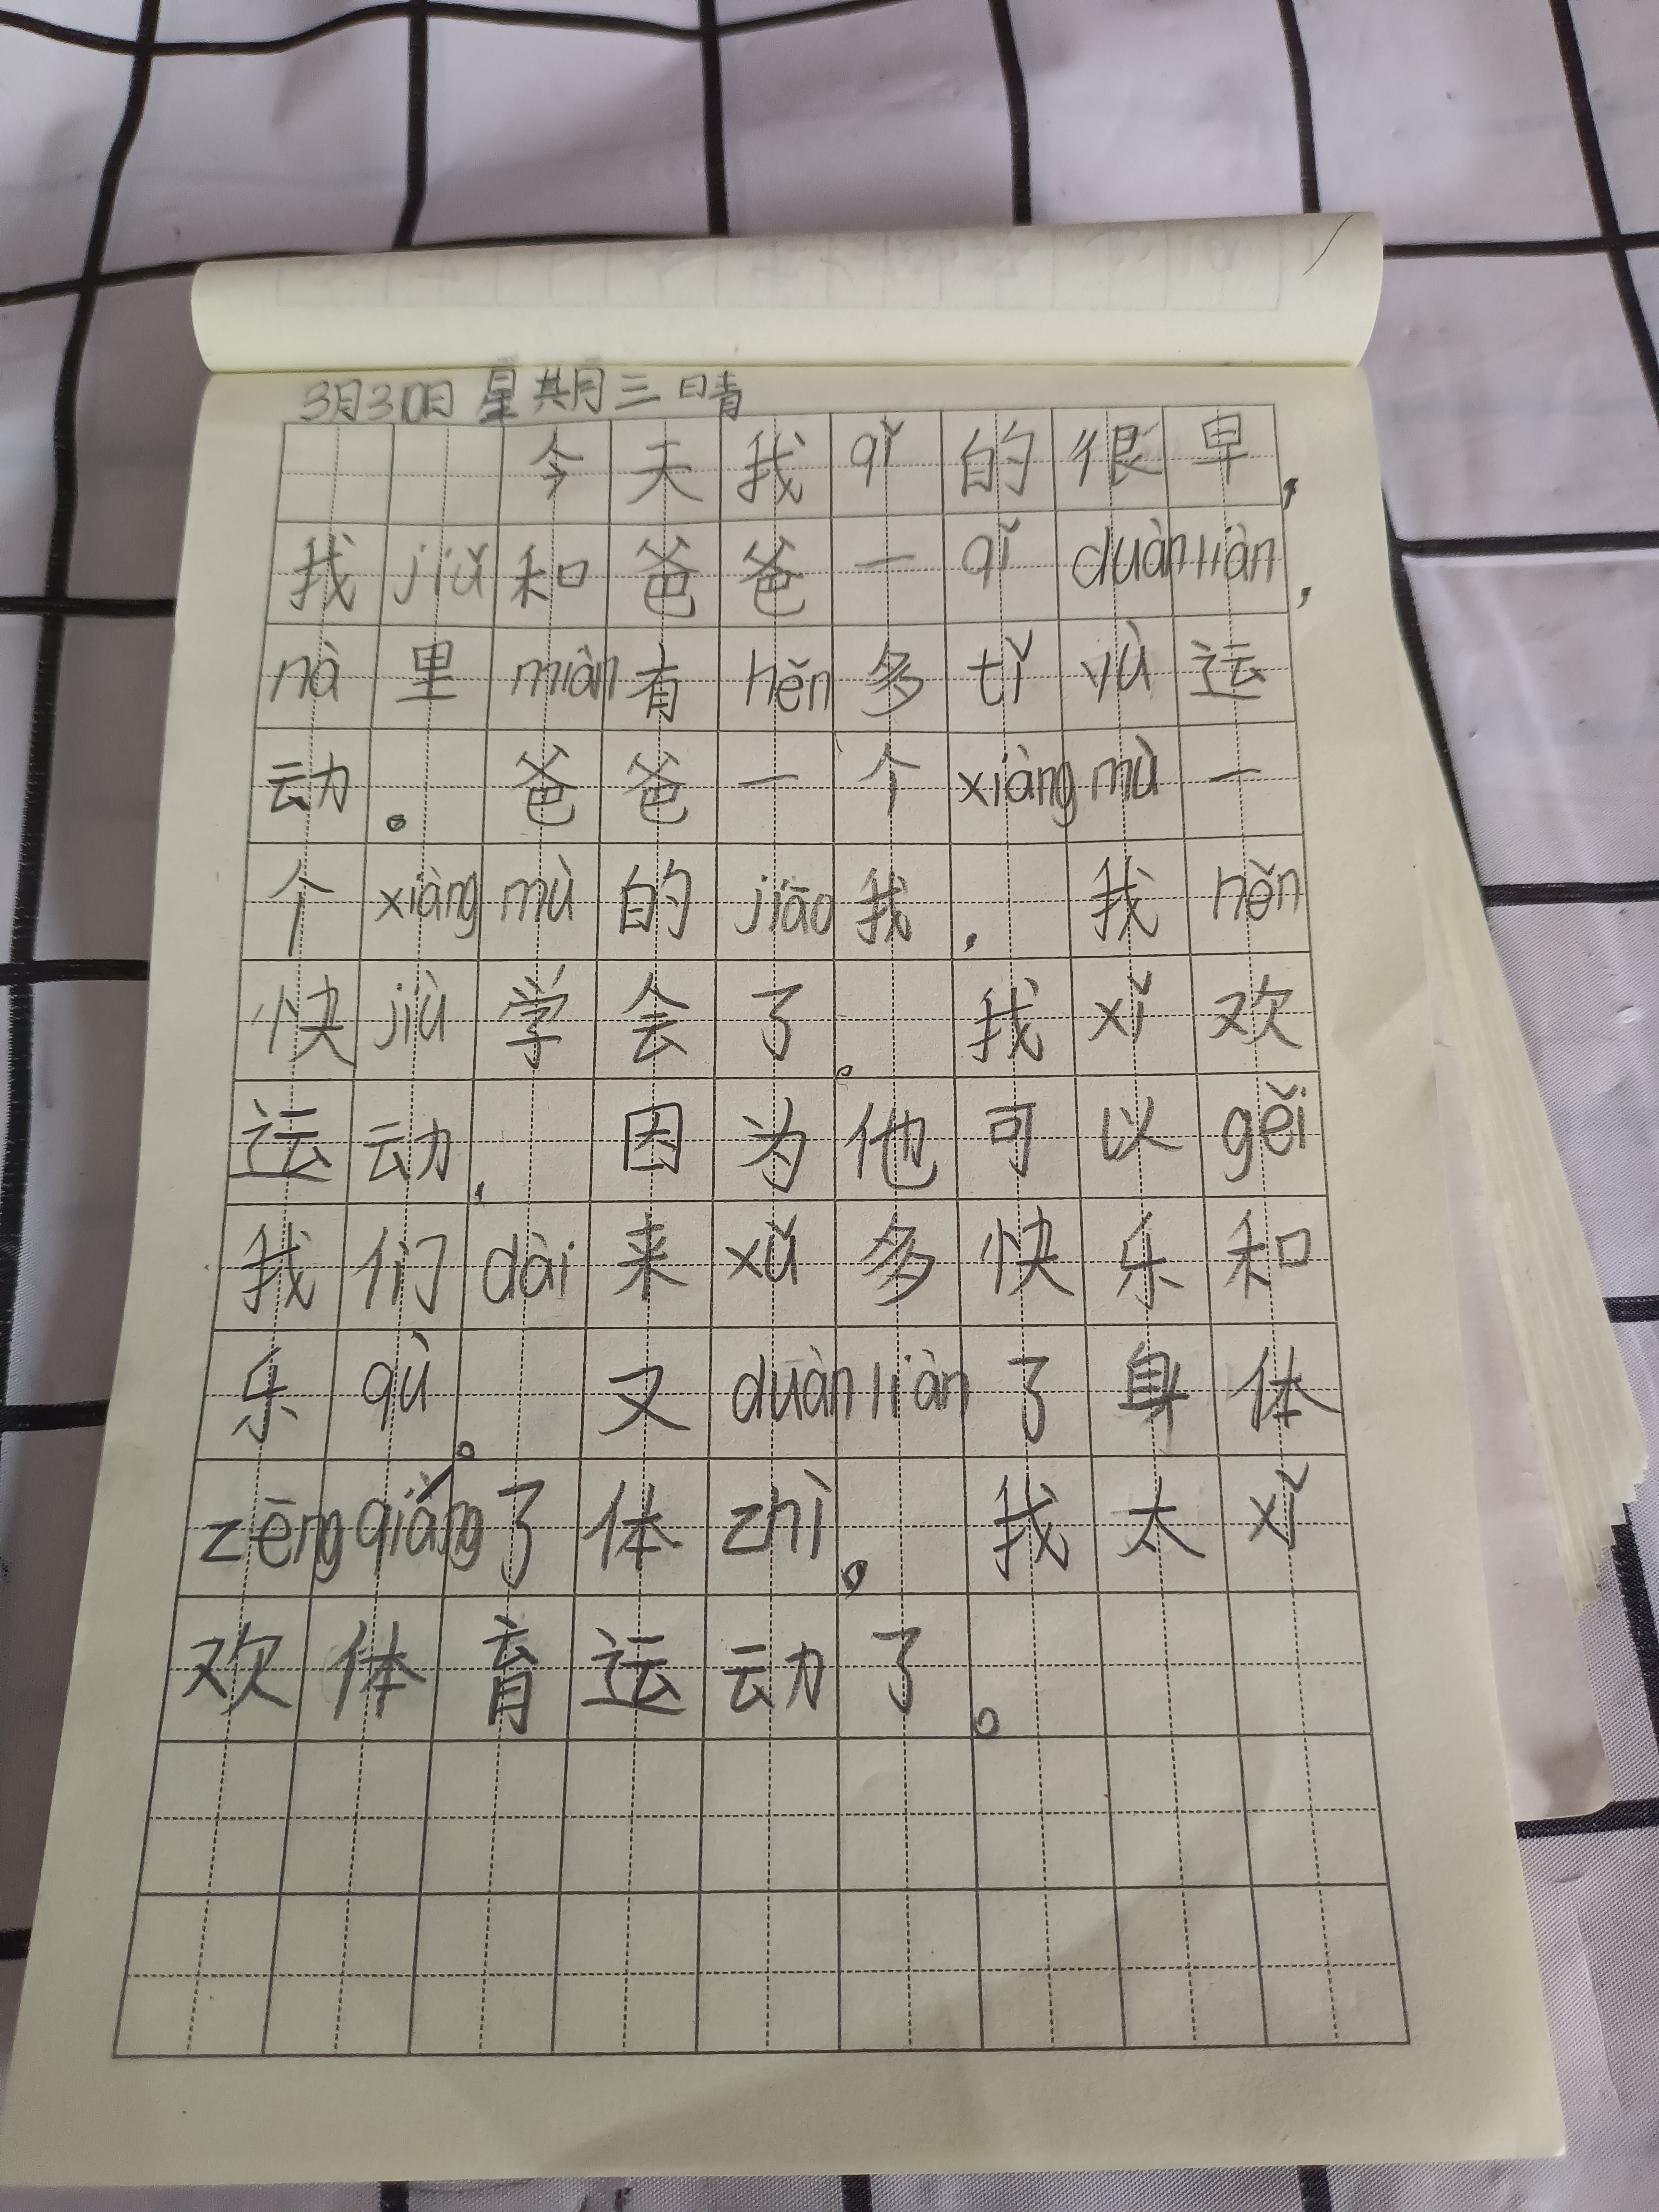 3月30日 星期三 晴
今天我qǐ的很早,
我jiǔ和爸爸一qǐ duànliàn,
nà里miàn有hěn多tǐ yù运
动。爸爸一个xiàng mù一
个xiàng mù的jiāo我,我hěn
快jiù学会了。我xǐ欢
运动,因为他可以gěi
我们dài来xǔ多快乐和
乐qù。又duànliàn了身体
zēngqiáng了体zhì。我太xǐ
欢体育运动了。